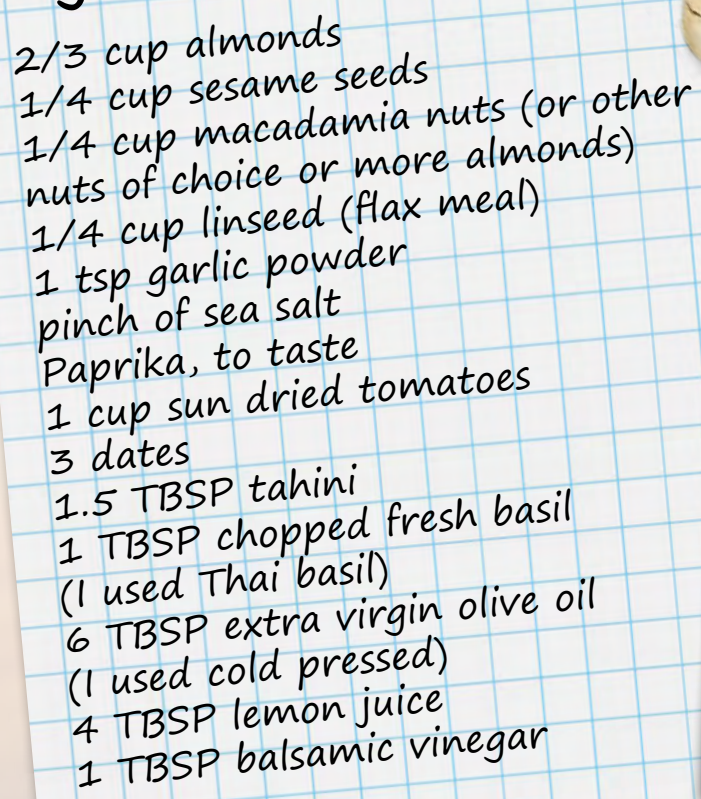 2/3 cup almonds
1/4 cup sesame seeds
1/4 cup macadamia nuts (or other
nuts of choice or more almonds)
1/4 cup linseed (flax meal)
1 tsp garlic powder
pinch of sea salt
Paprika, to taste
1 cup sun dried tomatoes
3 dates
1.5 TBSP tahini
1 TBSP chopped fresh basil
(I used Thai basil)
6 TBSP extra virgin olive oil
(I used cold pressed)
4 TBSP lemon juice
1 TBSP balsamic vinegar